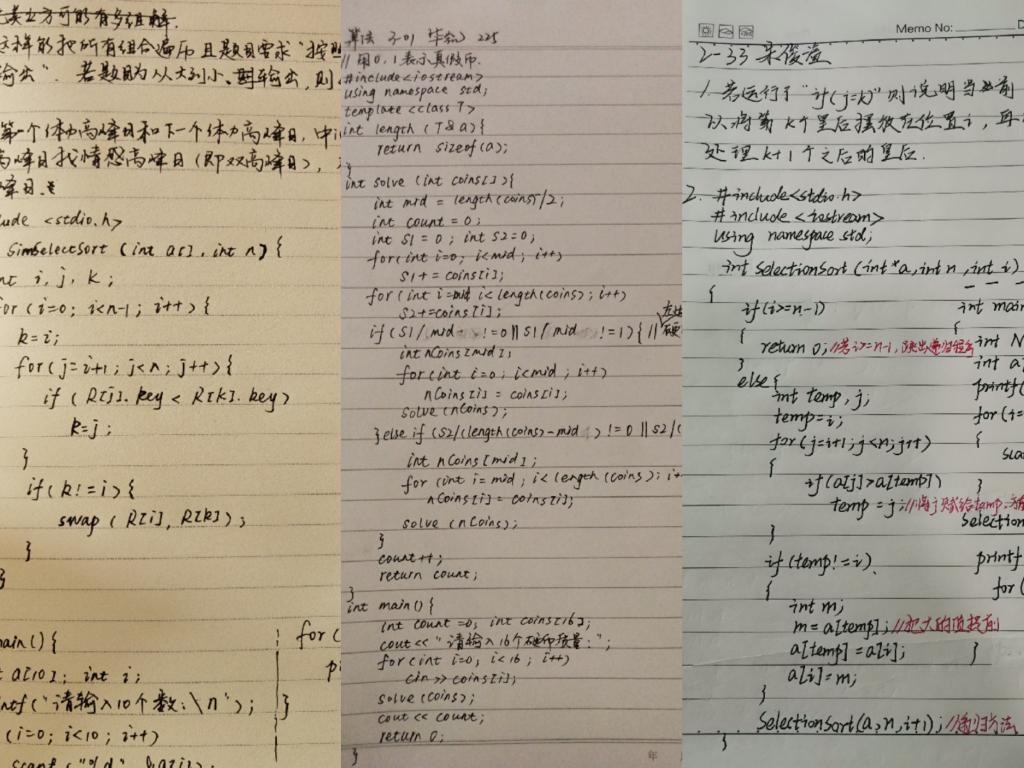 这样的把所有组合遍历且题目要求"按照
输出". 若题目为从大到小、输出,则
第一个体力高峰日和下一个体力高峰日,中
高峰日找情感高峰日(即双高峰日),
峰日.
lude <stdio.h>
SimSelectSort (int a[], int n) {
nt i, j, k;
for (i=0; i<n-1; i++) {
k=i;
for (j=i+1; j<n; j++) {
if (R[j].key < R[k].key)
k=j;
}
if (k!=i) {
swap (R[i], R[k]);
}
}
main() {
t a[10]; int i;
ntf("请输入10个数:\n");
(i=0; i<10; i++)
scanf ("%d", &a[i]);
for (
p
}
算法 3-01 225
// 用0,1表示真假币.
#include<iostream>
using namespace std;
template <class T>
int length (T&a){
return sizeof(a);
}
int solve (int coins[]){
int mid = length(coins)/2;
int count = 0;
int S1 = 0; int S2=0;
for(int i=0; i<mid; i++)
S1+= coins[i];
for (int i=mid i<length(coins); i++)
S2+=coins[i];
if (S1/mid !=0 || S1/mid !=1){ //
int nCoins[mid];
for(int i=0; i<mid; i++)
nCoins[i] = coins[i];
solve (nCoins);
}else if (S2/(length(coins)-mid ) != 0 || S2/(
int nCoins[mid];
for (int i=mid; i<length(coins); i+
nCoins[i] = coins[i];
solve (nCoins);
}
count++;
return count;
}
int main() {
int count =0; int coins[16];
cout<< "请输入16个硬币质量:";
for(int i=0; i<16; i++)
cin >> coins[i];
solve(coins);
cout << count;
return 0;
}
年
Memo No:
2-33 宋俊谊
1. 若运行了"if(j=k)"则说明当前
以将第k个皇后摆放在位置i,再
处理k+1个之后的皇后.
2. #include<stdio.h>
#include <iostream>
using namespace std;
int SelectionSort (int *a, int n, int i)
{
if(i>=n-1)
{
return 0; //若i>=n-1,跳出递归程序
}
else{
int temp, j;
temp=i;
for(j=i+1; j<n; j++)
{
if(a[j]>a[temp])
temp = j; //将j赋给temp,
}
if(temp!=i)
{
int m;
m=a[temp]; //把大的值换前
a[temp]=a[i];
a[i]=m;
}
SelectionSort(a,n,i+1); //递归方法
}
int main
{
int N
int a
printf(
for(i=
{
sca
}
Selection
printf
for(
}